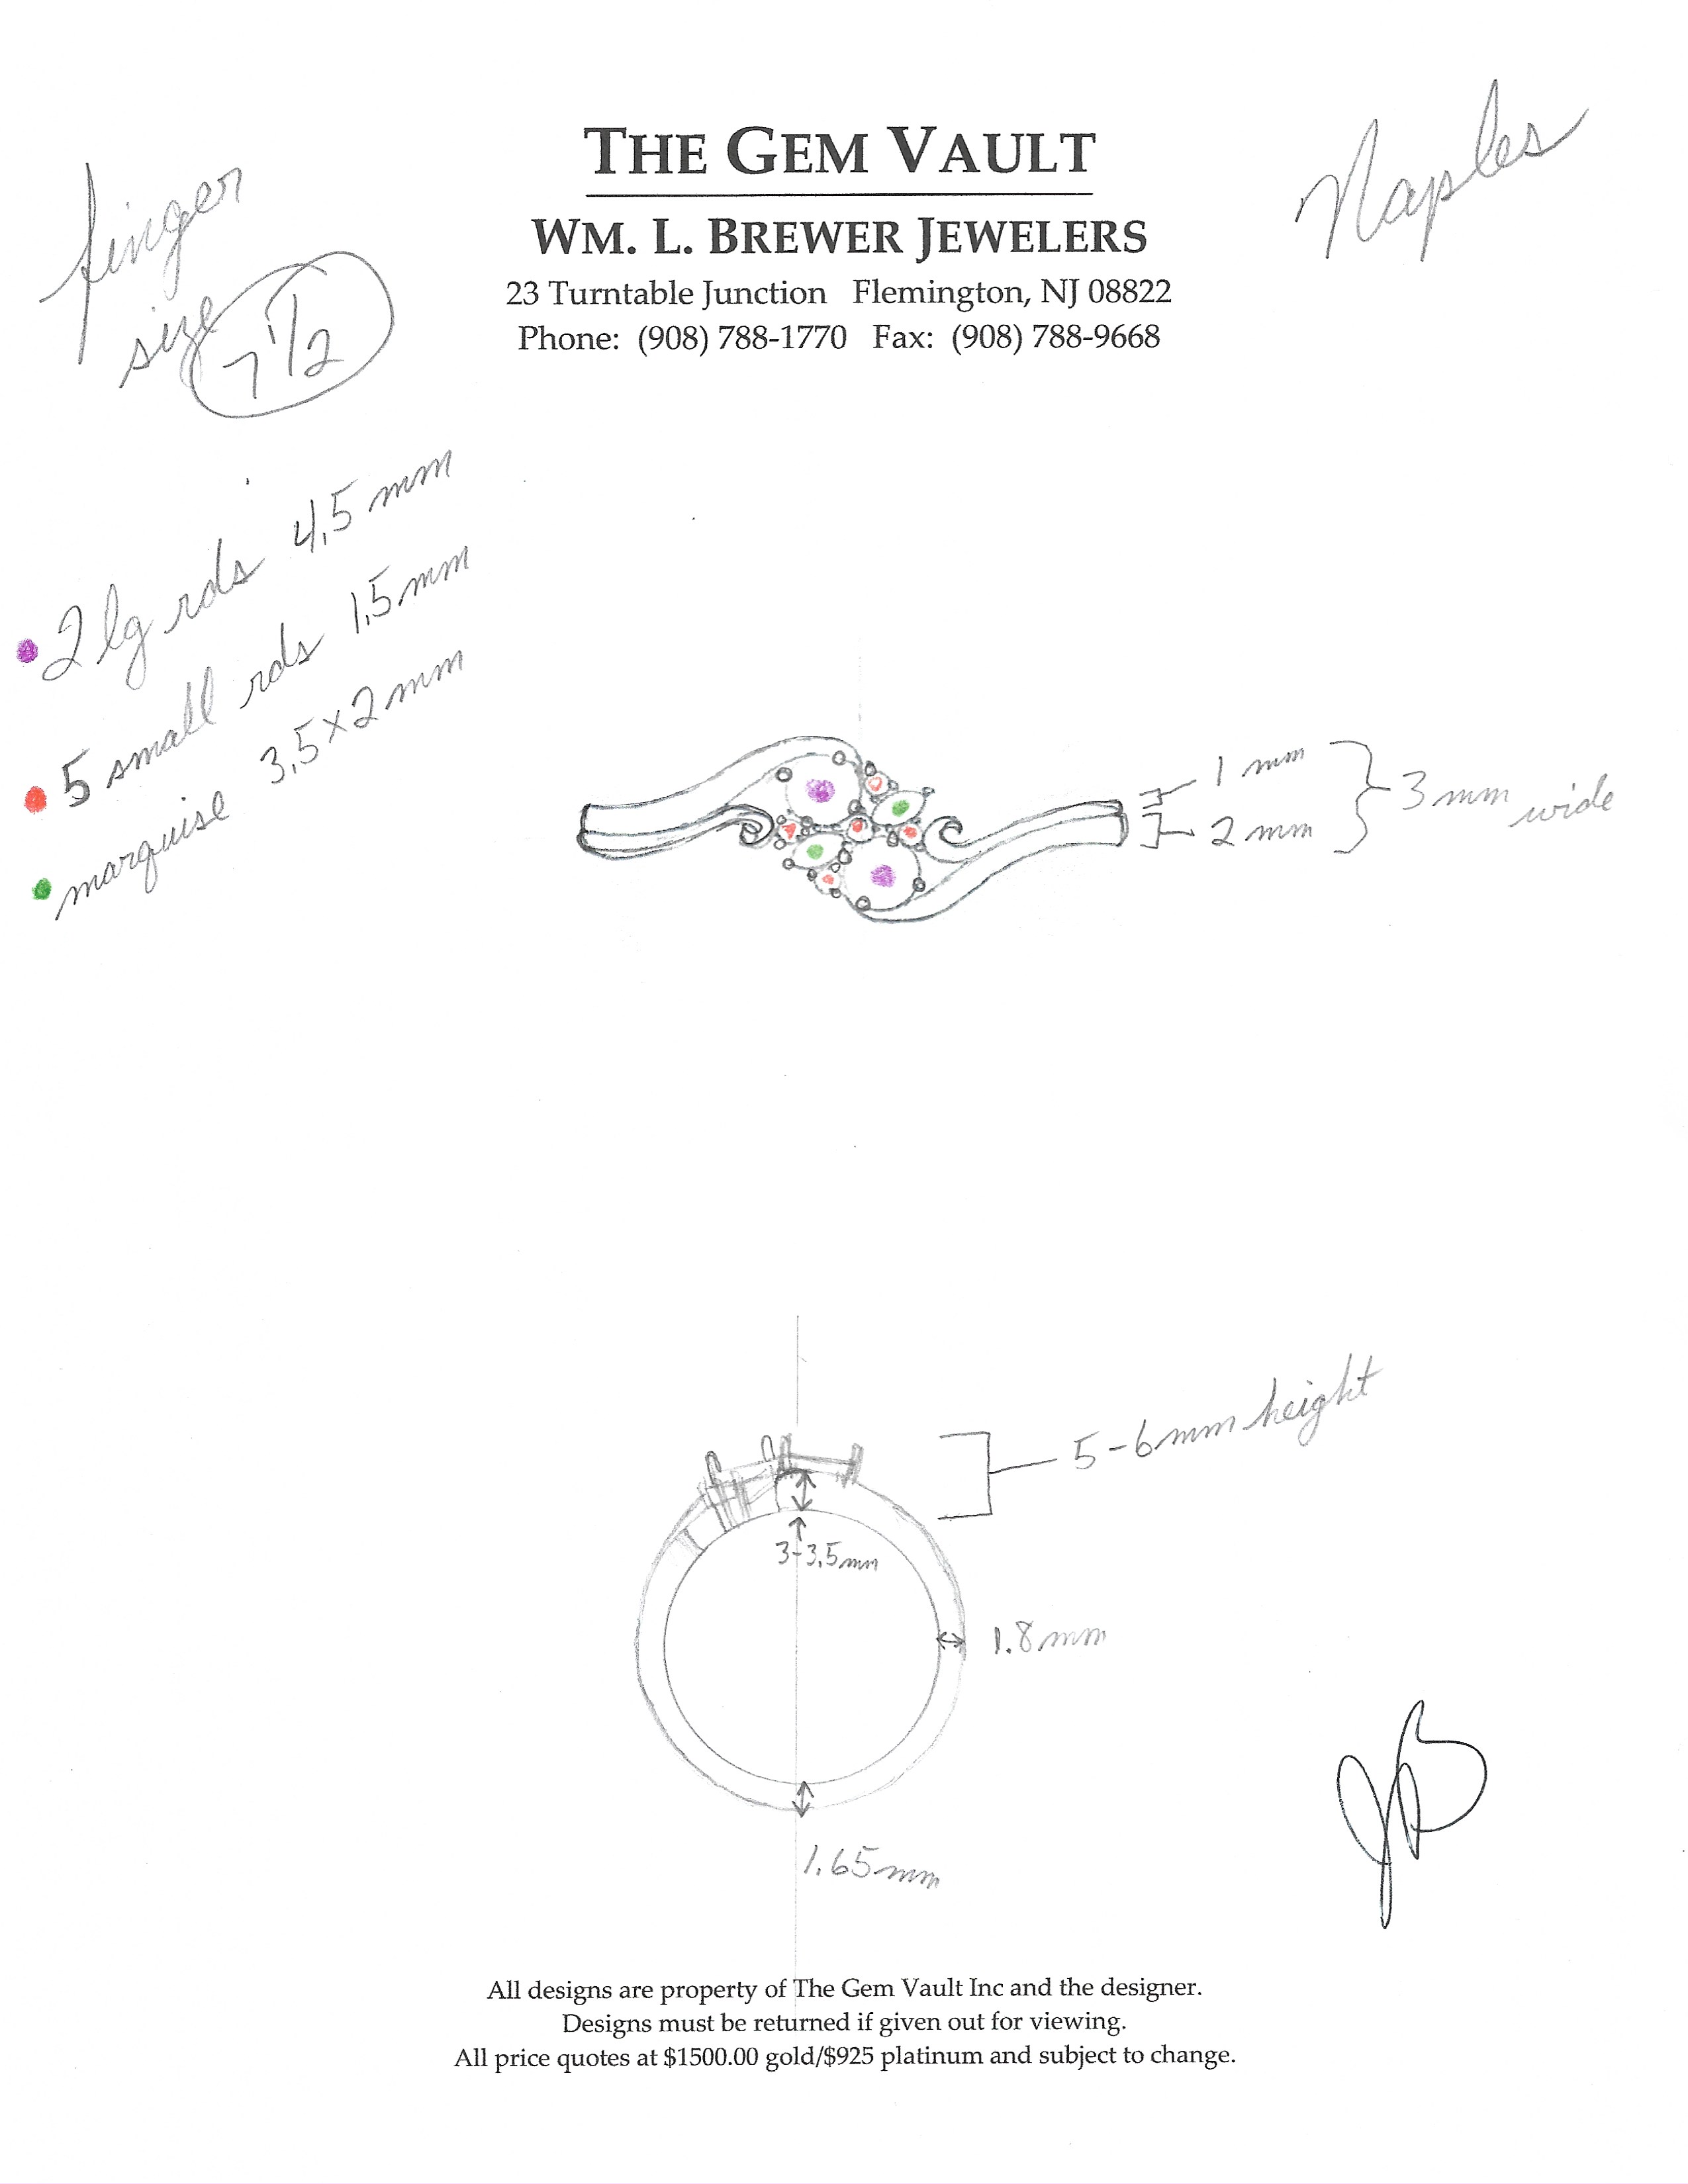 THE GEM VAULT
WM. L. BREWER JEWELERS
23 Turntable Junction Flemington, NJ 08822
Phone: (908) 788-1770 Fax: (908) 788-9668
Naples
finger
size 7 1/2
2 lg rds 4.5 mm
5 small rds 1.5 mm
marquise 3.5 x 2 mm
1 mm
2 mm
3 mm wide
5-6 mm height
3-3.5mm
1.8 mm
1.65 mm
JB
All designs are property of The Gem Vault Inc and the designer.
Designs must be returned if given out for viewing.
All price quotes at $1500.00 gold/$925 platinum and subject to change.